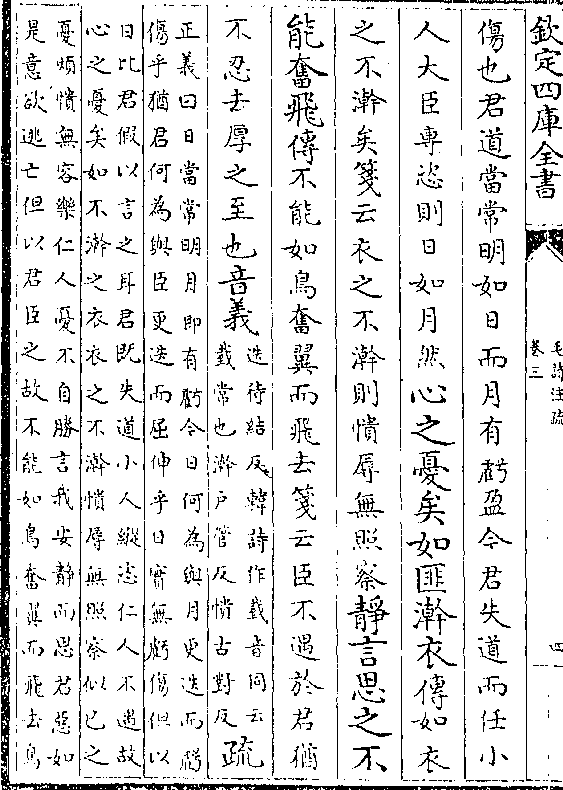 欽定四庫全書
毛詩注疏
卷三
四
傷也君道當常明如日而月有虧盈今君失道而任小
人大臣專恣則日如月然心之憂矣如匪澣衣傳如衣
之不澣矣箋云衣之不澣則憒辱無照察靜言思之不
能奮飛傳不能如鳥奮翼而飛去箋云臣不遇於君猶
不忍去厚之至也音義
迭待結反韓詩作臷音同云
臷常也澣戶管反憒古對反
疏
正義曰日當常明月即有虧今日何為與月更迭而虧
傷乎猶君何為與臣更迭而屈伸乎日實無虧傷但以
日比君假以言之耳君既失道小人縱恣仁人不遇故
心之憂矣如不澣之衣衣之不澣憒辱無照察似己之
憂煩憒無容樂仁人憂不自勝言我安靜而思君惡如
是意欲逃亡但以君臣之故不能如鳥奮翼而飛去鳥